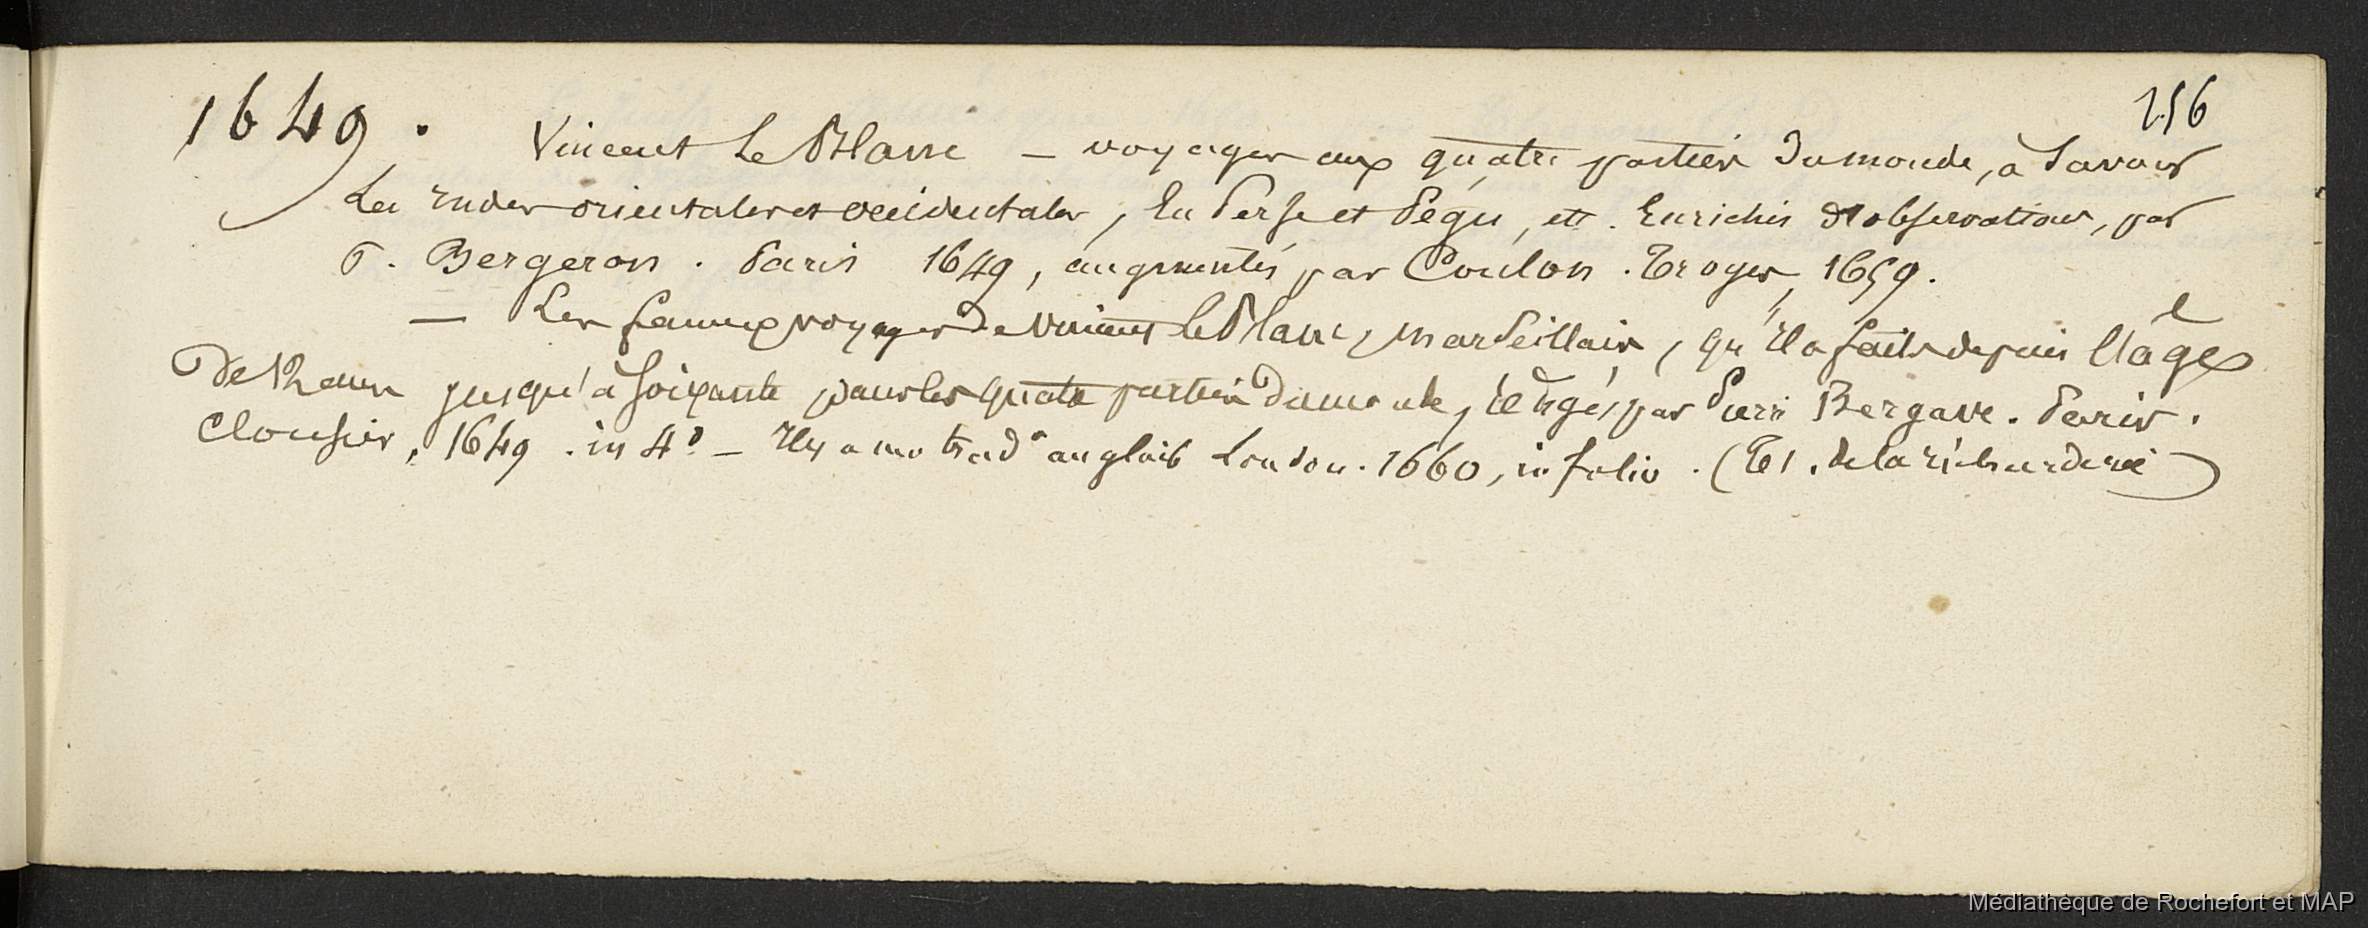 256
1649. Vincent Le Blanc — voyages aux quatre parties du monde, à savoir
Les indes orientales et occidentales, En Perse et Pégu, etc. Enrichis d'observations, par
P. Bergeron. Paris 1649, augmentés par Coulon. Troyes, 1659.
— Les fameux voyages de Vincent Le Blanc, marseillais, qu'il a faits depuis l'âge
De 12 ans jusqu'à soixante dans les quatre parties du monde, rédigés par Pierre Bergave. Paris.
Clousier, 1649. in 4° — Il y a une trad° anglaise London. 1660, in folio. (Et. de la richarderie)
Médiathèque de Rochefort et MAP